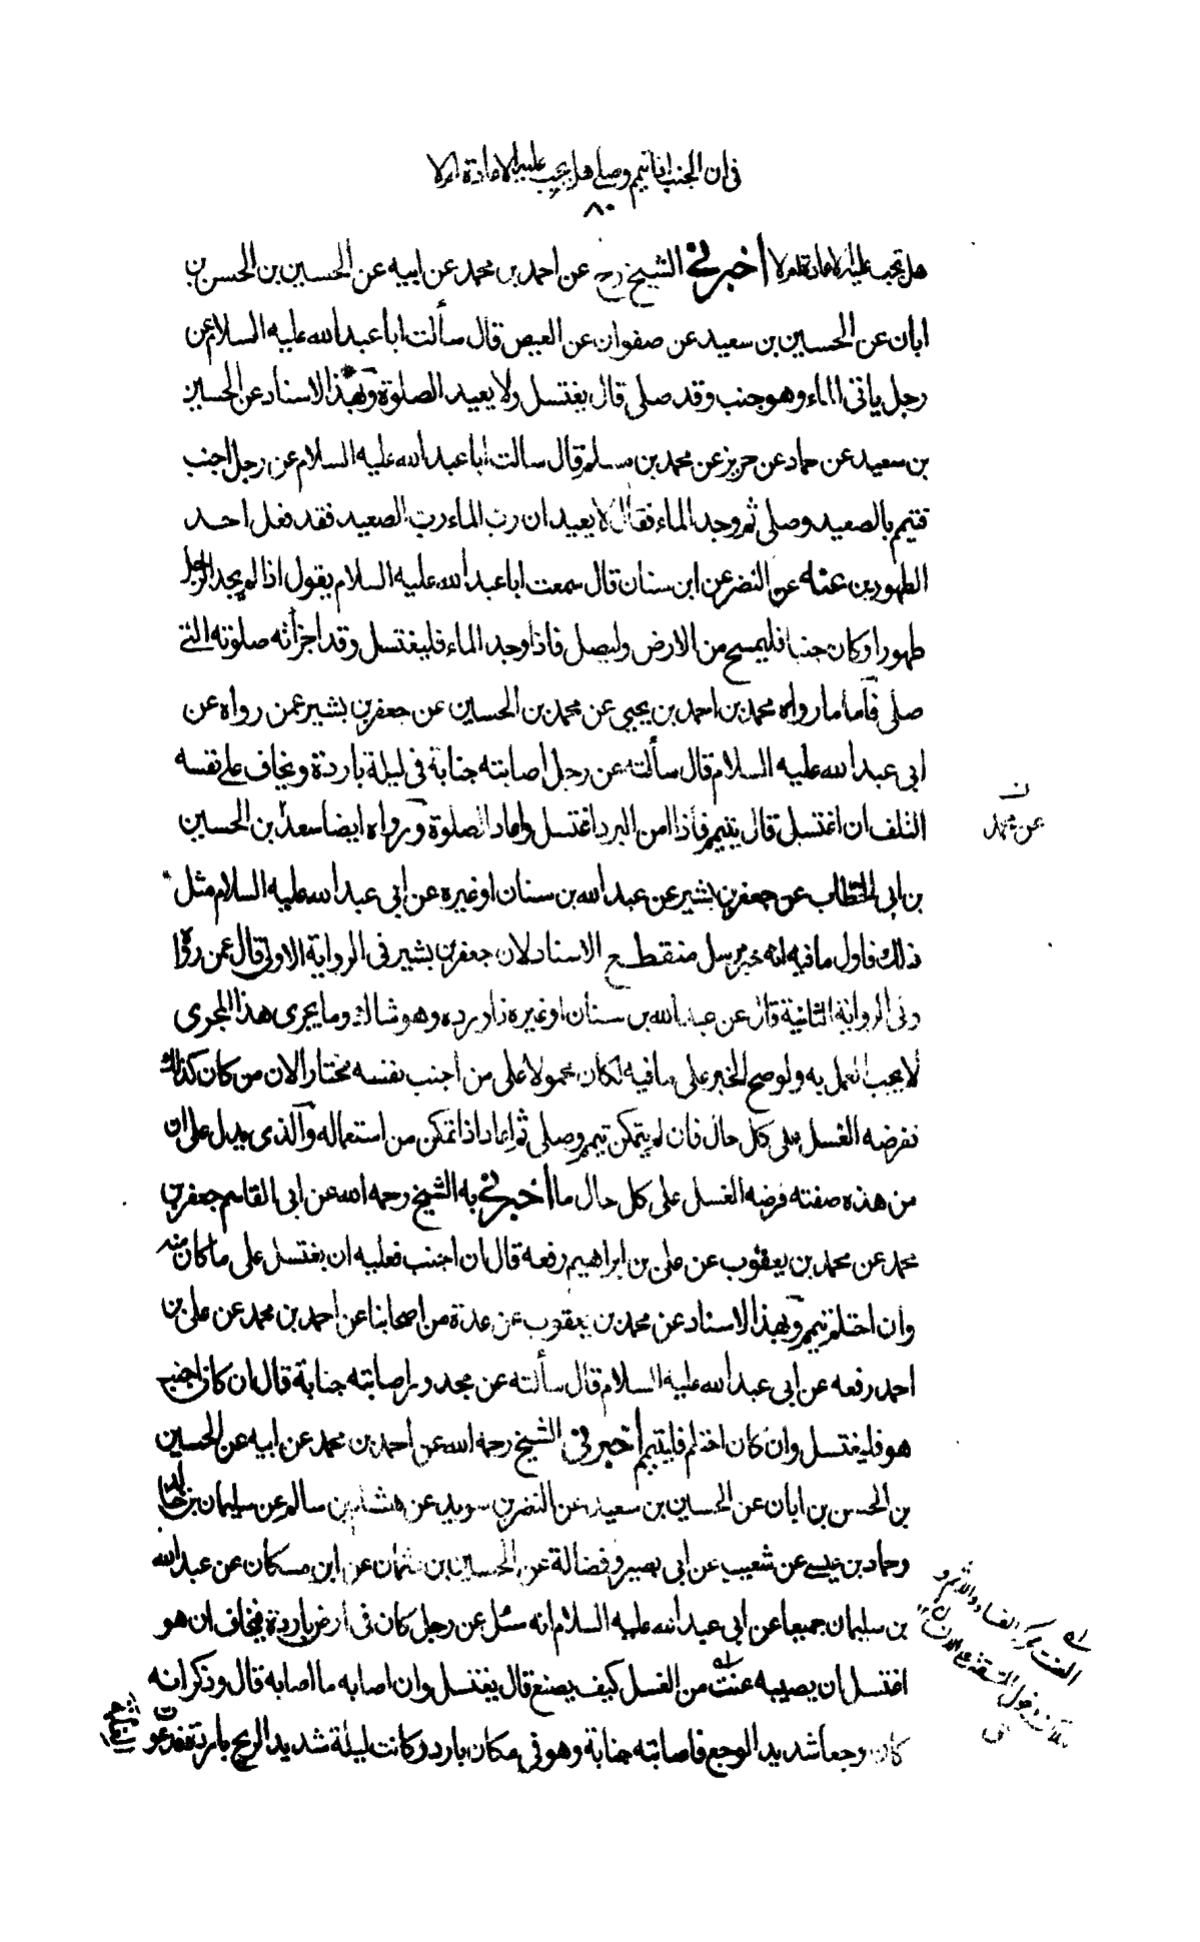 فى ان الجنب اذا تيمم وصلى هل يجب عليه الاعادة ام لا
٨٠
هل تجب عليه الاعادة ام لا اخبرني الشيخ رح عن احمد بن محمد عن ابيه عن الحسين بن الحسن بن
ابان عن الحسين بن سعيد عن صفوان عن العيص قال سألت ابا عبد الله عليه السلام عن
رجل ياتى الماء وهو جنب وقد صلى قال يغتسل ولا يعيد الصلوة وبهذا الاسناد عن الحسين
بن سعيد عن حماد عن حريز عن محمد بن مسلم قال سالت ابا عبد الله عليه السلام عن رجل اجنب
فتيمم بالصعيد وصلى ثم وجد الماء فقال لا يعيد ان رب الماء رب الصعيد فقد فعل احد
الطهورين عنه عن النضر عن ابن سنان قال سمعت ابا عبد الله عليه السلام يقول اذا لم يجد الرجل
طهورا وكان جنبا فليمسح من الارض وليصل فاذا وجد الماء فليغتسل وقد اجزأته صلوته التى
صلى فأما ما رواه محمد بن احمد بن يحيى عن محمد بن الحسين عن جعفر بن بشير عمن رواه عن
ابى عبد الله عليه السلام قال سألته عن رجل اصابته جنابة فى ليلة باردة ويخاف على نفسه
التلف ان اغتسل قال يتيمم فاذا امن البرد اغتسل واعاد الصلوة ورواه ايضا سعد بن الحسين
عن محمد
بن ابى الخطاب عن جعفر بن بشير عن عبد الله بن سنان او غيره عن ابى عبد الله عليه السلام مثل
ذلك فاول ما فيه انه خبر مرسل منقطع الاسناد لان جعفر بن بشير فى الرواية الاولى قال عمن رواه
وفى الرواية الثانية قال عن عبد الله بن سنان او غيره فاورده وهو شاك وما يجرى هذا المجرى
لا يجب العمل به ولو صح الخبر على ما فيه لكان محمولا على من اجنب نفسه مختارا لان من كان كذلك
ففرضه الغسل على كل حال فان لم يتمكن تيمم وصلى ثم اعاد اذا تمكن من استعماله والذى يدل على ان
من هذه صفته فرضه الغسل على كل حال ما اخبرنى به الشيخ رحمه الله عن ابى القاسم جعفر بن
محمد عن محمد بن يعقوب عن على بن ابراهيم رفعه قال ان اجنب فعليه ان يغتسل على ما كان منه
وان احتلم تيمم وبهذا الاسناد عن محمد بن يعقوب عن عدة من اصحابنا عن احمد بن محمد عن على بن
احمد رفعه عن ابى عبد الله عليه السلام قال سألته عن مجدور اصابته جنابة قال ان كان اجنب
هو فليغتسل وان كان احتلم فليتيمم اخبرنى الشيخ رحمه الله عن احمد بن محمد عن ابيه عن الحسين
بن الحسن بن ابان عن الحسين بن سعيد عن النضر بن سويد عن هشام بن سالم عن سليمان بن خالد
وحماد بن عيسى عن شعيب عن ابى بصير وفضالة عن الحسين بن عثمان عن ابن مسكان عن عبد الله
بن سليمان جميعا عن ابى عبد الله عليه السلام انه سئل عن رجل كان فى ارض باردة فيخاف ان هو
اغتسل ان يصيبه عنت من الغسل كيف يصنع قال يغتسل وان اصابه ما اصابه قال وذكر انه
كان وجعا شديد الوجع فاصابته جنابة وهو فى مكان بارد وكانت ليلة شديد الريح باردة فدعو